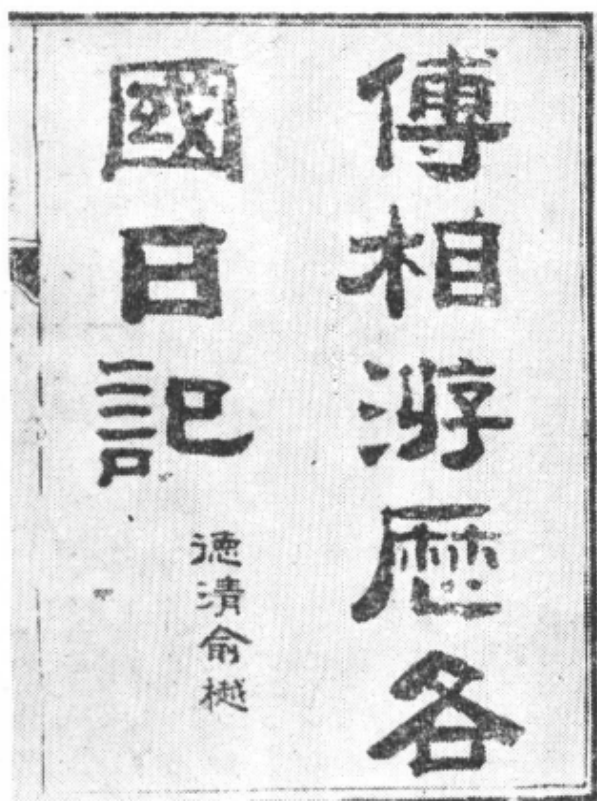 傅相游歷各
國日記
德清俞樾